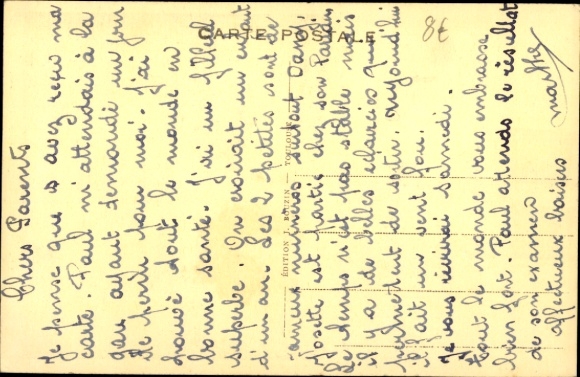 CARTE POSTALE
8€
ÉDITION J. BOUZIN — TOULOUSE
Chers Parents
Je pense que vs avez reçu ma
carte. Paul m'attendais à la
gare ayant demandé un jour
de perm pour moi. J'ai
trouvé tout le monde en
bonne santé. J'ai un filleul
superbe. On croirait un enfant
d'un an. Les 2 petites sont de
vraies surtout Dany
Josette est partie chez son Parrain
le temps n'est pas stable mais
il y a de belles éclaircies qui
permettent de sortir. Aujourd'hui
il fait un vent fou.
Je vous écrirai samedi.
tout le monde vous embrasse
bien fort. Paul attends le résultat
de son examen
affectueux baisers
Marthe